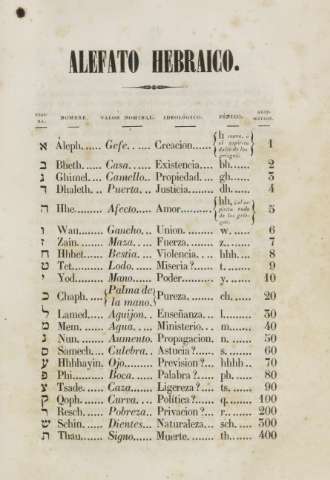 ALEFATO HEBRAICO.
NOMBRE. VALOR NOMINAL. IDEOLÓGICO. FÓNICO.
א Aleph..... Gefe..... Creacion..... 1
ב Bheth..... Casa..... Existencia.... bh..... 2
ג Ghimel.... Camello.. Propiedad. gh..... 3
ד Dhaleth... Puerta... Justicia...... dh..... 4
ה Hhe........ Afecto.... Amor........ hh, 5
ו Wau....... Gancho... Union....... w..... 6
ז Zain........ Maza..... Fuerza...... z...... 7
ח Hhhet..... Bestia.... Violencia.... hhh... 8
ט Tet......... Lodo..... Miseria?..... t...... 9
י Yod........ Mano..... Poder........ y...... 10
כ Chaph... { Palma de la mano. } Pureza....... ch..... 20
ל Lamed.... Aguijon.. Enseñanza. l...... 30
מ Mem....... Agua..... Ministerio.. m..... 40
נ Nun........ Aumento. Propagacion. n..... 50
ס Samech... Culebra.. Astucia?..... s...... 60
ע Hhhhayin. Ojo...... Prevision?... hhhh.. 70
פ Phi......... Boca..... Palabra?.... ph.... 80
צ Tsade...... Caza..... Ligereza?... ts..... 90
ק Qoph...... Curva.... Política?..... q..... 100
ר Resch..... Pobreza.. Privacion?... r..... 200
ש Schin..... Dientes... Naturaleza.. sch... 300
ת Thau...... Signo..... Muerte....... th.... 400